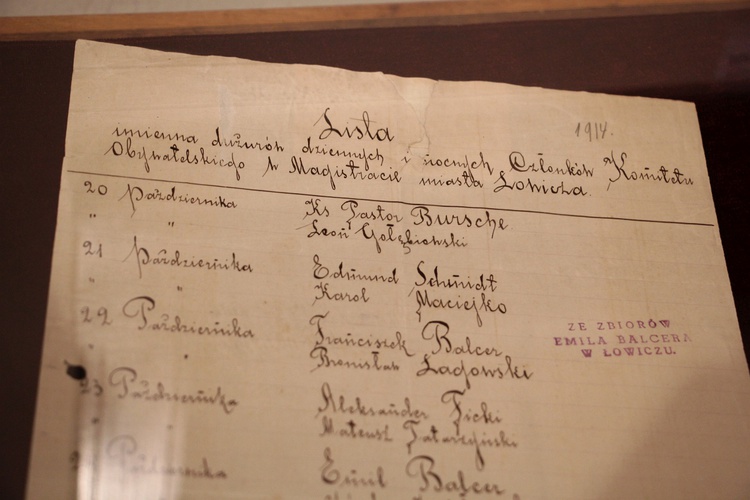 Lista
1914.
imienna dużurów dziennych i nocnych Członków Komitetu
Obywatelskiego w Magistracie miasta Łowicza.
20 Października Ks Pastor Bursche
" " Leon Gołębiowski
21 Października Edmund Schmidt
" " Karol Maciejko
22 Października Franciszek Balcer
" " Bronisław Łagowski
ZE ZBIORÓW
EMILA BALCERA
W ŁOWICZU.
23 Października Aleksander Ficki
" Mateusz Tatarzyński
Października Emil Balcer